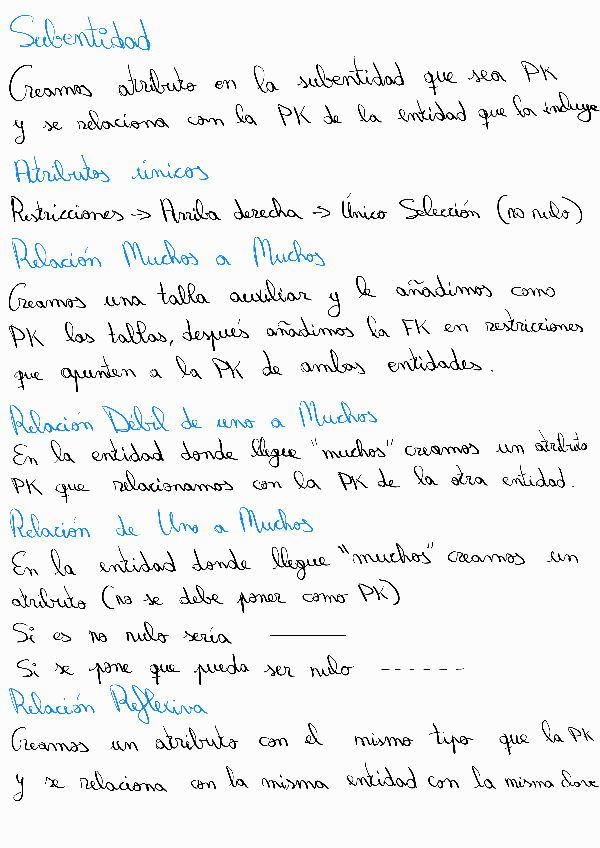 Subentidad
Creamos atributo en la subentidad que sea PK
y se relaciona con la PK de la entidad que la incluye
Atributos únicos
Restricciones -> Arriba derecha -> Único Selección (no nulo)
Relación Muchos a Muchos
Creamos una tabla auxiliar y le añadimos como
PK las tablas, después añadimos la FK en restricciones
que apunten a la PK de ambas entidades.
Relación Débil de uno a Muchos
En la entidad donde llegue "muchos" creamos un atributo
PK que relacionamos con la PK de la otra entidad.
Relación de Uno a Muchos
En la entidad donde llegue "muchos" creamos un
atributo (no se debe poner como PK)
Si es no nulo sería ———
Si se pone que pueda ser nulo ------
Relación Reflexiva
Creamos un atributo con el mismo tipo que la PK
y se relaciona con la misma entidad con la misma clave